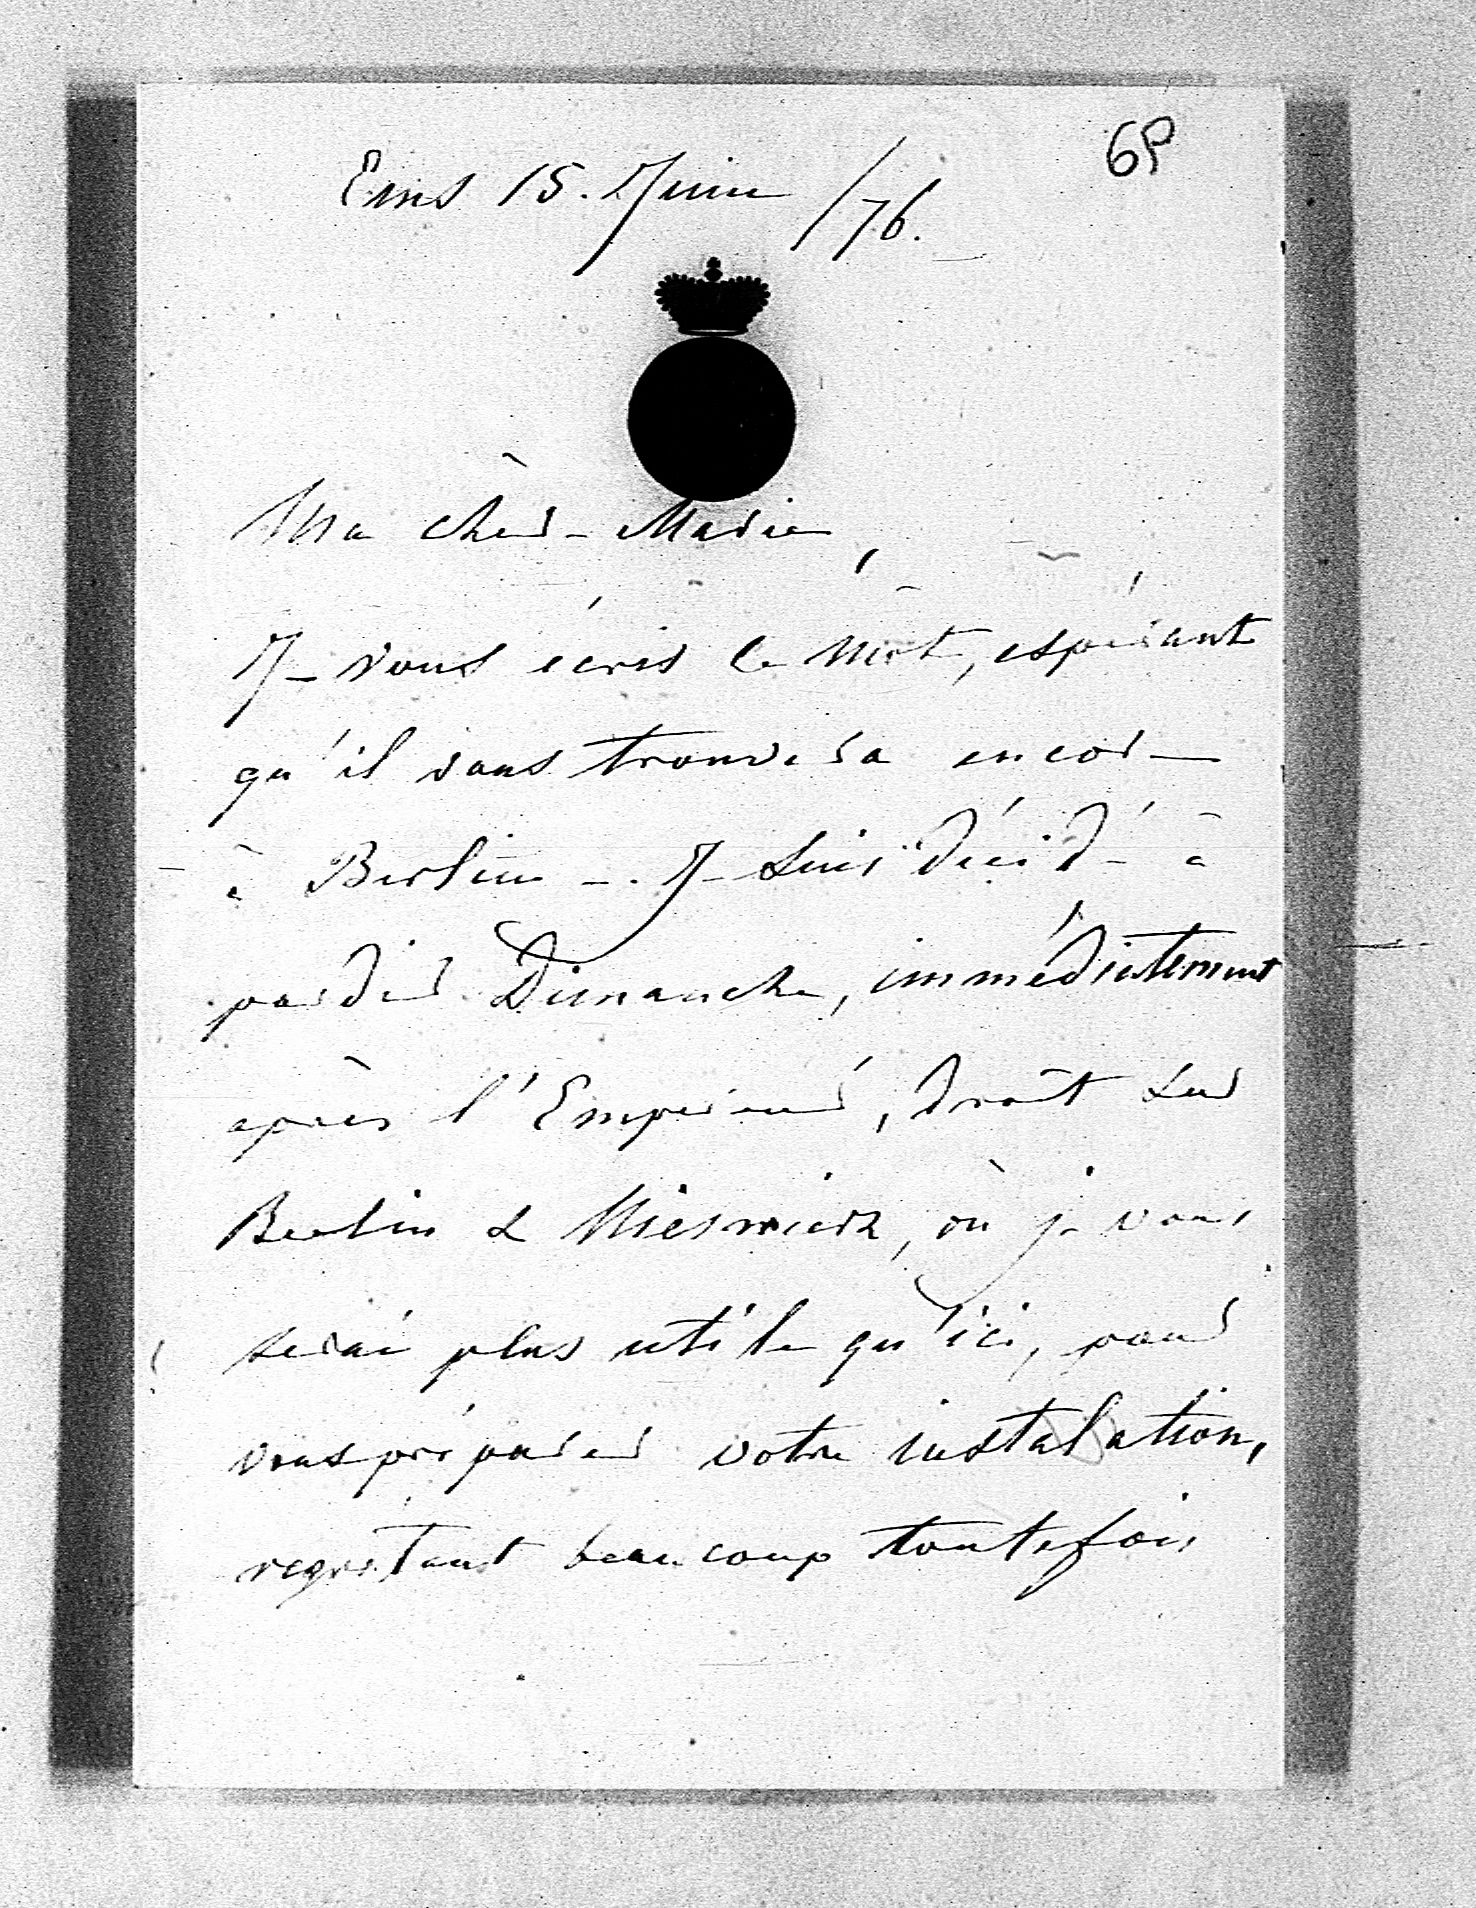 6P
Ems 15. Juin /76.
Ma chère Marie,
Je vous écris ce mot, espérant
qu'il vous trouvera encore
à Berlin. Je suis décidé à
partir Dimanche, immédiatement
après l'Empereur, droit sur
Berlin & Nieswierz, où je vous
serai plus utile qu'ici, pour
vous préparer votre instalation,
regretant beaucoup toutefois